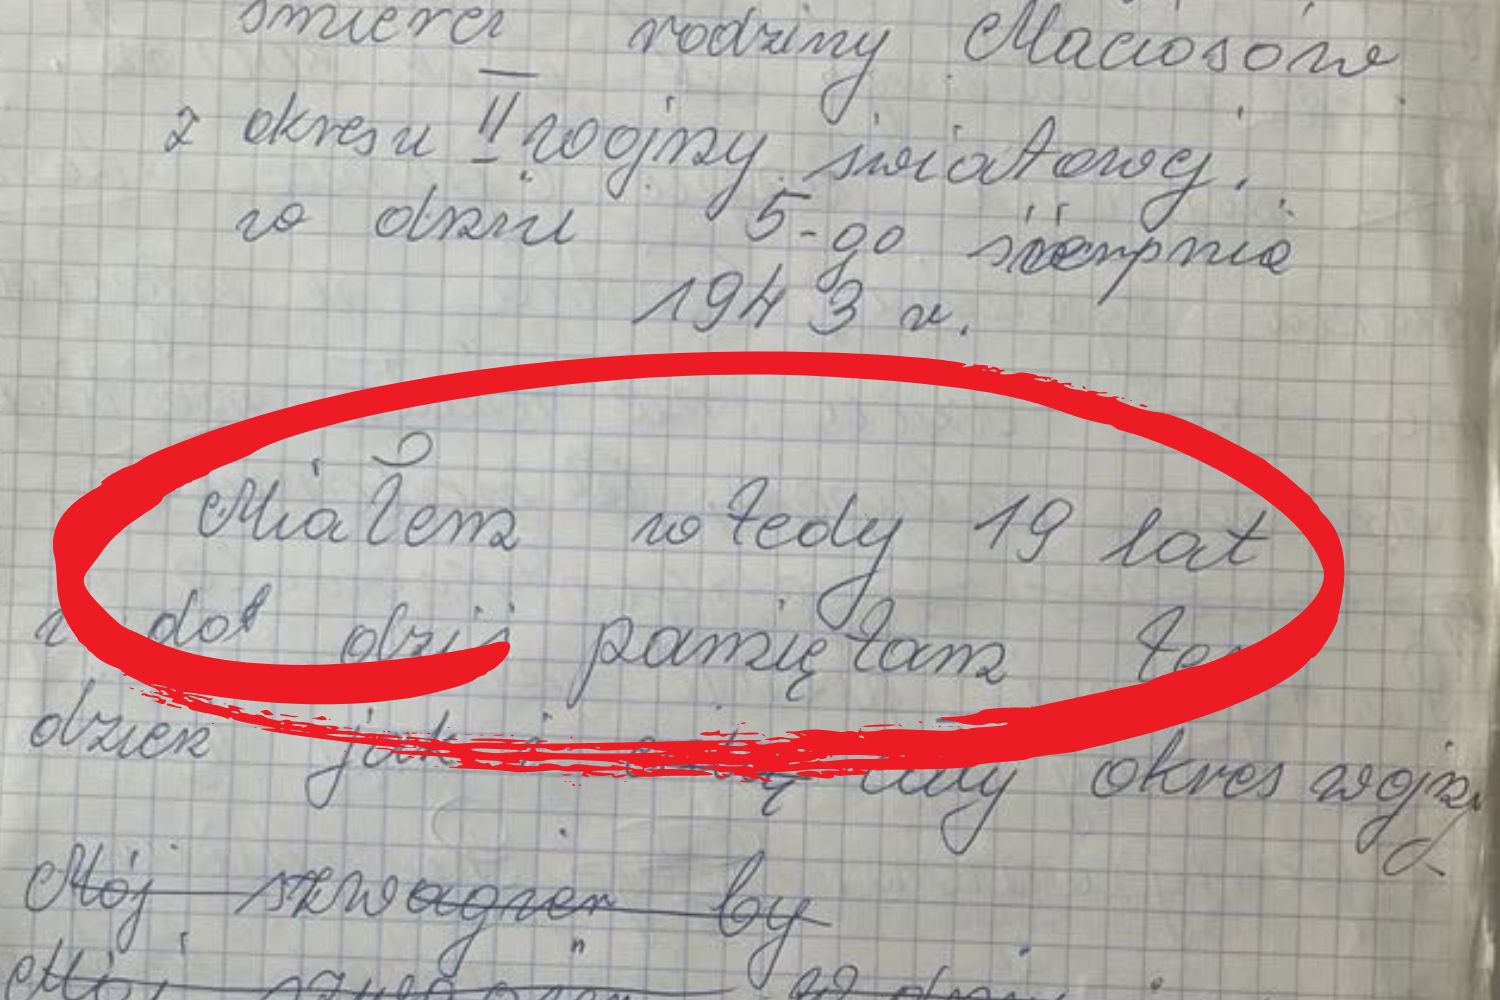 śmierci rodziny Maciosów
z okresu II wojny światowej.
w dniu 5-go sierpnia
1943 r.
Miałem wtedy 19 lat
i do dziś pamiętam ten
dzień jak i cały okres wojny
Mój szwagier by
Mój szwagier w dniu